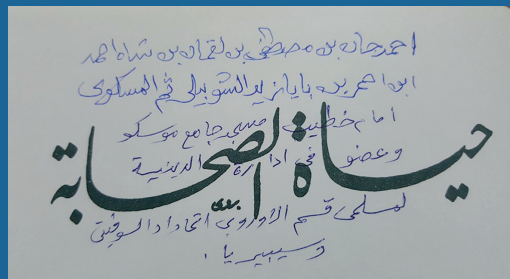 احمد جان بن مصطفى بن لقمان بن شاه احمد
ابن احمر بن بايا نزيد الشوبيلى ثم المسكوى
امام خطيب مسجد جامع موسكو
حياة الصحابة
وعضو فى ادارة الدينية
لمسلمى قسم الأوروبى اتحاد السوفيتى
وسيبيريا.